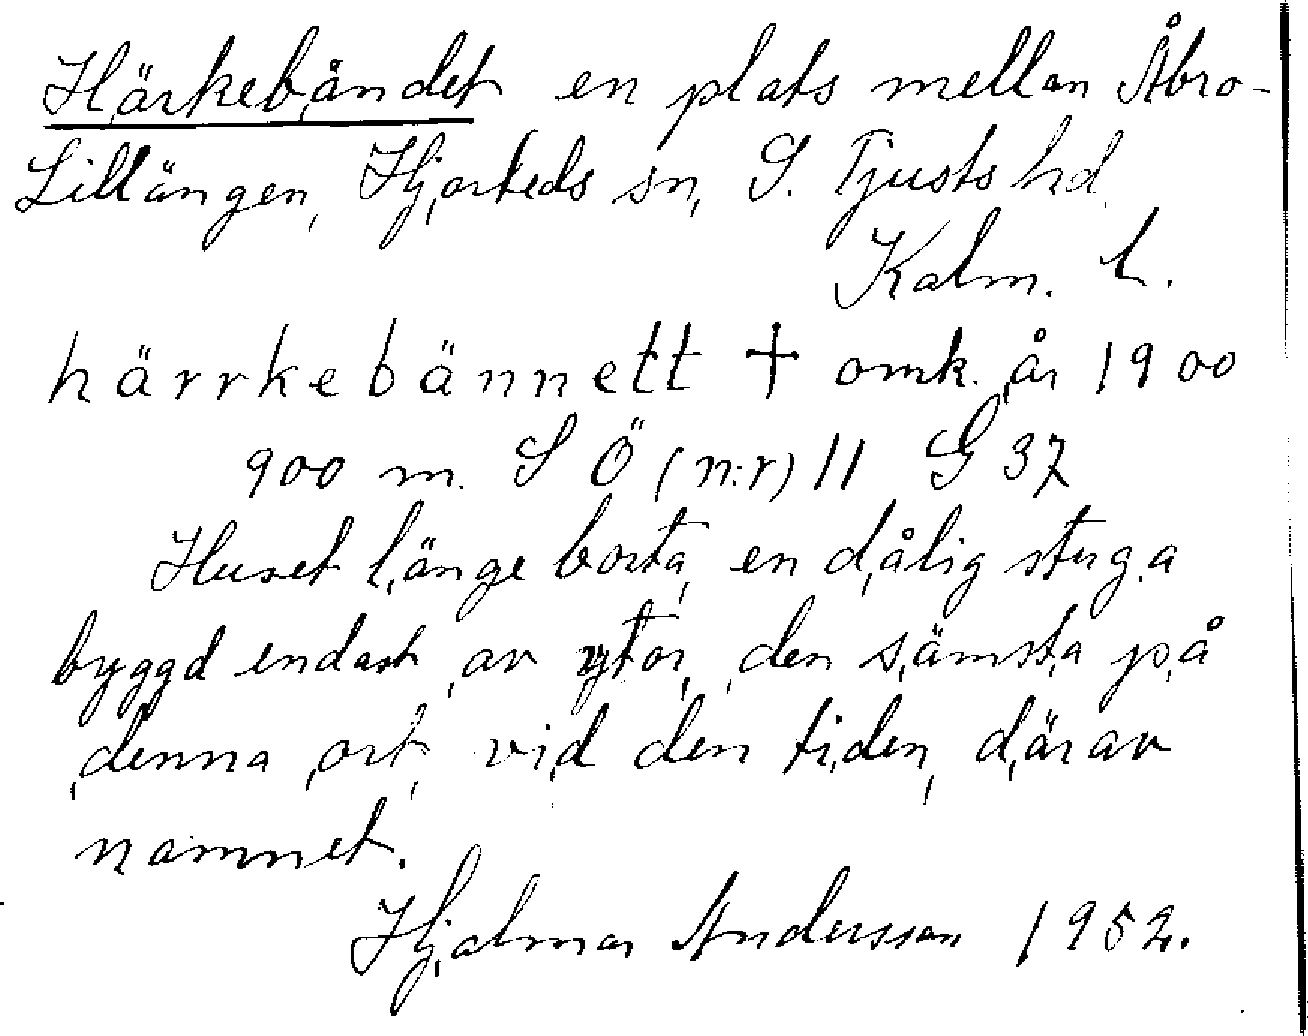 Härkebåndet en plats mellan Åbro-
Lillängen, Hjorteds sn, S. Tjusts hd,
Kalm. l.
härrkebännett † omk. år 1900
900 m. S Ö (n:r) 11 G 37
Huset länge borta, en dålig stuga
byggd endast av ytor, den sämsta på
denna ort, vid den tiden, därav
namnet.
Hjalmar Andersson 1952.